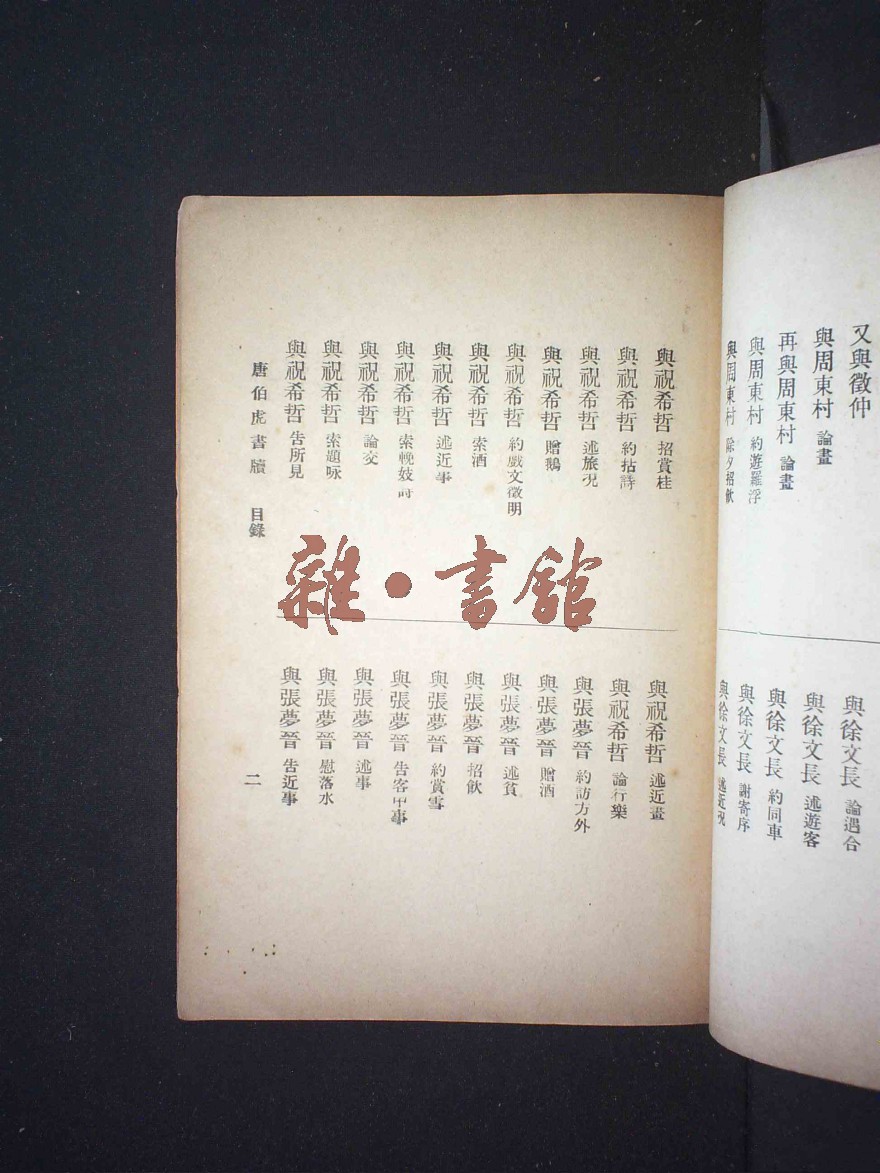 又與徵仲
與周東村 論畫
再與周東村 論畫
與周東村 約遊羅浮
與周東村 除夕招飲
與徐文長 論遇合
與徐文長 述遊客
與徐文長 約同車
與徐文長 謝寄序
與徐文長 述近況
與祝希哲 招賞桂
與祝希哲 約拈詩
與祝希哲 述旅況
與祝希哲 贈鵝
與祝希哲 約戲文徵明
與祝希哲 索酒
與祝希哲 述近事
與祝希哲 索輓妓詩
與祝希哲 論交
與祝希哲 索題咏
與祝希哲 告所見
與祝希哲 述近畫
與祝希哲 論行樂
與張夢晉 約訪方外
與張夢晉 贈酒
與張夢晉 述貧
與張夢晉 招飲
與張夢晉 約賞雪
與張夢晉 告客中事
與張夢晉 述事
與張夢晉 慰落水
與張夢晉 告近事
唐伯虎書牘 目錄
二
雜·書館